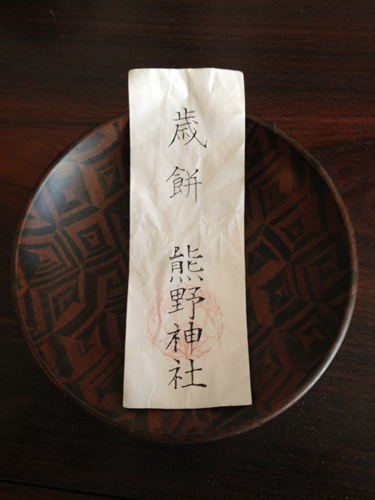 歳餅 熊野神社